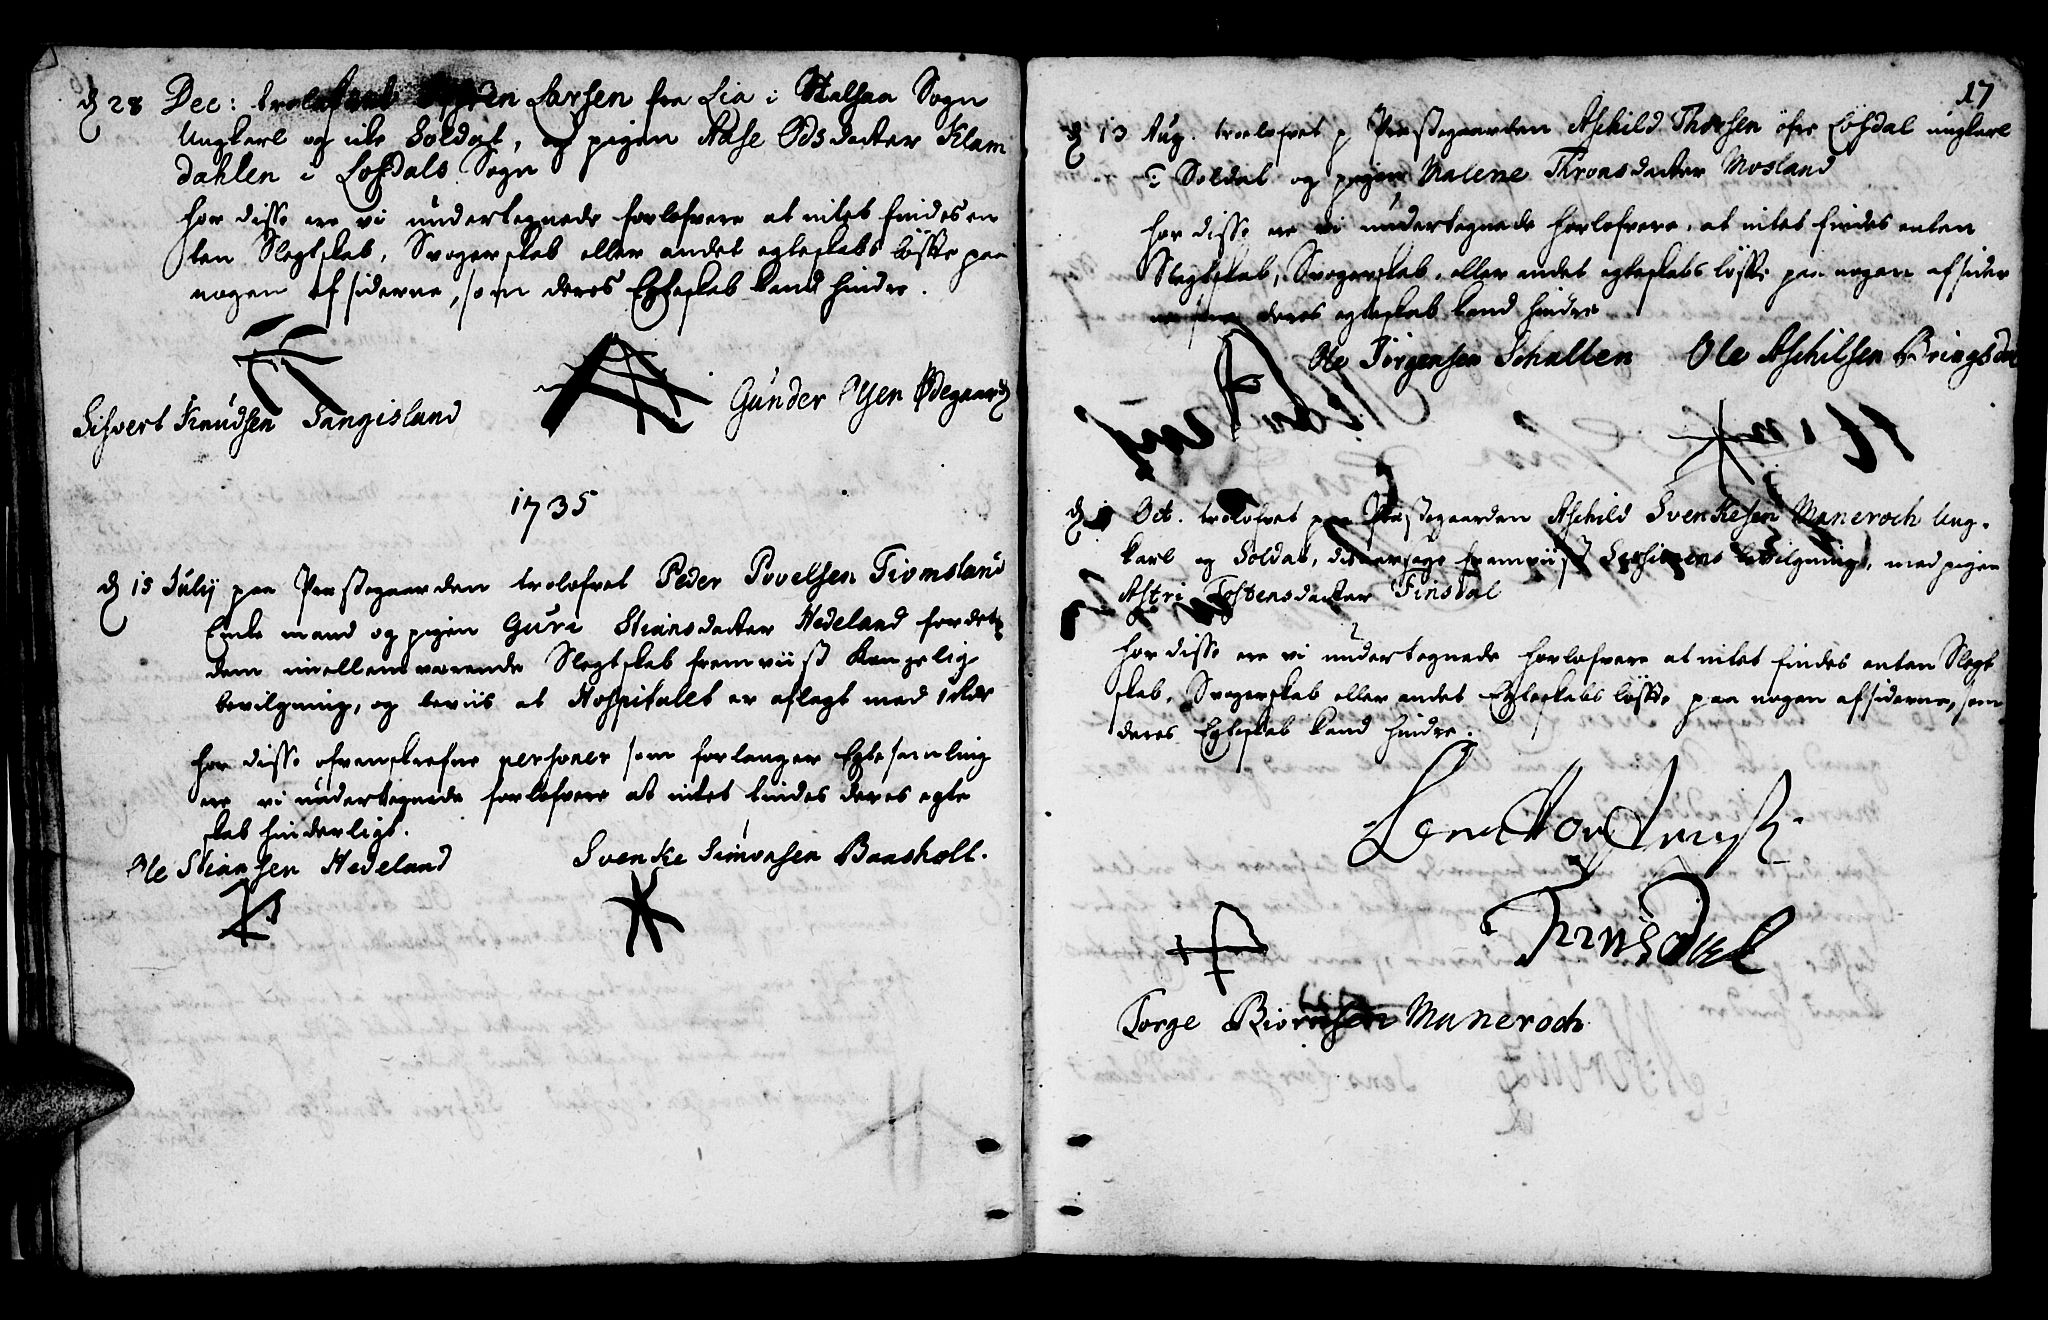 d 28 Dec: trolofvet Larsen fra Lia i Sogn
Ungkarl og icke Soldat, og pigen Aase Ods dacter Klam
dahlen i Lofdals Sogn
For disse ere vi undertegnede forlofvere at intet findes en
ten Slegtskab, Svogerskab eller andet egteskabs löfte paa
nogen af siderne, som deres Egteskab kand hindre.
Gunder Ødegaard
Sifvert Knudsen Langisland
1735
d 15 July paa Præstegaarden trolofvet Peder Povelsen Tiomsland
Enke mand og pigen Guri Stiansdacter Hedeland for det
dem imellem værende Slegtskab fremviist Kongelig
bevilgning, og beviis at Hospitalet er aflagt med
For disse ofvenskrefne personer som forlanger Egte samling
ere vi undertegnede forlofvere at intet findes deres egte
skab hinderligt.
Ole Stiansen Hedeland Svenke Simonsen Baasholt.
17
d 13 Aug. trolofvet p Præstegaarden Aschild Thorsen öfre Löfdal ungkarl
Soldat og pigen Malene Throns dacter Mosland
For disse ere vi undertegnede forlofvere, at intet findes enten
Slegtskab, Svogerskab, eller andet egteskabs löfte paa nogen af sider
ne som deres egteskab kand hindre
Ole Jörgensen Ole Aschilsen Bringsdal
d Oct. trolofvet paa Præstegaarden Aschild Svenkesen Maneroch Ung.
karl og Soldat, fremviist bevilgning, med pigen
Astri Tostensdacter Finsdal
For disse ere vi undertegnede forlofvere at intet findes enten Slegt
skab, Svogerskab eller andet Egteskabs löfte paa nogen af siderne, som
deres Egteskab kand hindre.
Torge Biörnsen Maneroch